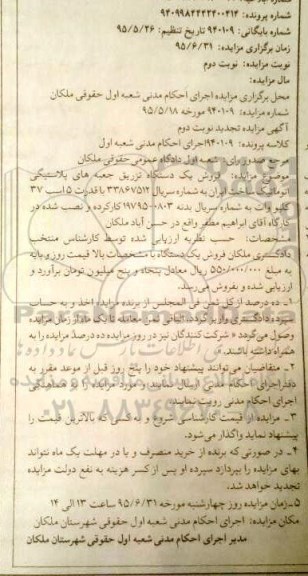 شماره پرونده: ۹۴۰۹۹۸۴۴۴۲۴۰۰۴۱۴
شماره بایگانی: ۹۴۰۱۰۹ تاریخ تنظیم: ۹۵/۵/۲۶
زمان برگزاری مزایده: ۹۵/۶/۳۱
نوبت مزایده: نوبت دوم
مال مزایده:
محل برگزاری مزایده اجرای احکام مدنی شعبه اول حقوقی ملکان
شماره مزایده: ۹۴۰۱۰۹ مورخه ۹۵/۵/۱۸
آگهی مزایده تجدید نوبت دوم
کلاسه پرونده: ۹۴۰۱۰۹اجرای احکام مدنی شعبه اول
مرجع صدور رای: شعبه اول دادگاه عمومی حقوقی ملکان
موضوع مزایده: فروش یک دستگاه تزریق جعبه های پلاستیکی
اتوماتیک ساخت ایران به شماره سریال ۳۳۸۶۷۵۱۲ با قدرت ۵۰اسب ۳۷
کیلو وات به شماره سریال بدنه ۱۹۷۹۵۰۰۸۰۳ کارکرده و نصب شده در
کارگاه آقای ابراهیم مظفر واقع در حسن آباد ملکان
مشخصات: حسب نظریه ارزیابی شده توسط کارشناس منتخب
دادگستری ملکان فروش یک دستگاه با مشخصات بالا قیمت روز و پایه
به مبلغ ۵۵۰/۰۰۰/۰۰۰ ریال معادل پنجاه و پنج میلیون تومان برآورد و
ارزیابی شده و بفروش می رسد.
۱ـ ده درصد از کل ثمن فی المجلس از برنده مزایده اخذ و به حساب
سپرده دادگستری واریز و مابقی ثمن معامله تا یک ماه از زمان مزایده
وصول می گردد « شرکت کنندگان نیز در روز مزایده ده درصد مزایده را به
همراه داشته باشند.
۲ـ متقاضیان می توانند پیشنهاد خود را پنج روز قبل از موعد مقرر به
دفتر اجرای احکام مدنی ارسال نمایند و مورد مزایده را با هماهنگی
اجرای احکام مدنی رویت نمایند.
۳ـ مزایده از قیمت کارشناسی شروع و به کسی که بالاترین قیمت را
پیشنهاد نماید واگذار می شود.
۴ـ در صورتی که برنده از خرید منصرف و یا در مهلت یک ماه نتواند
بهای مزایده را بپردازد سپرده او پس از کسر هزینه به نفع دولت مزایده
تجدید خواهد شد.
۵ـ زمان مزایده روز چهارشنبه مورخه ۹۵/۶/۳۱ ساعت ۱۳ الی ۱۴
مکان مزایده: اجرای احکام مدنی شعبه اول حقوقی شهرستان ملکان
مدیر اجرای احکام مدنی شعبه اول حقوقی شهرستان ملکان